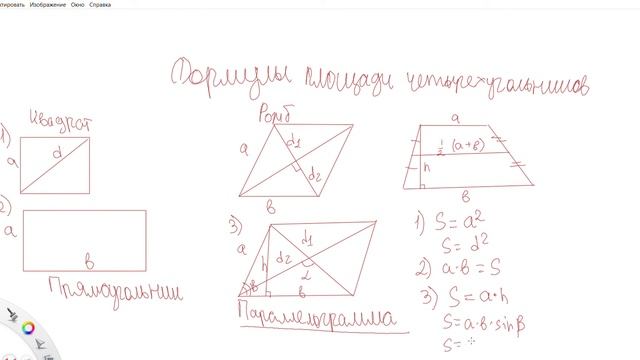 Изображение Окно Справка
Формулы площади четырехугольников
Квадрат
1)
a
d
2)
a
в
Прямоугольник
Ромб
a
d1
d2
в
3)
a
d1
d2
h
β
α
в
Параллелограмма
a
1/2 (a+в)
h
в
1) S = a²
S = d²
2) a·в = S
3) S = a·h
S = a·в·sinβ
S =